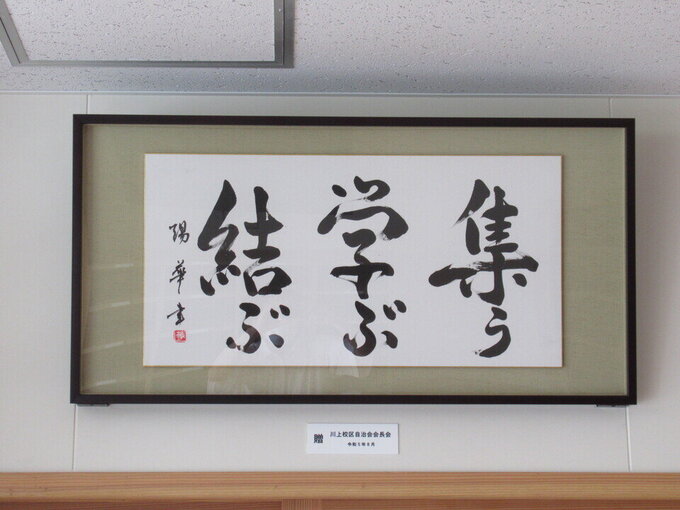 集う
学ぶ
結ぶ
陽華書
贈
川上校区自治会会長会
令和5年8月